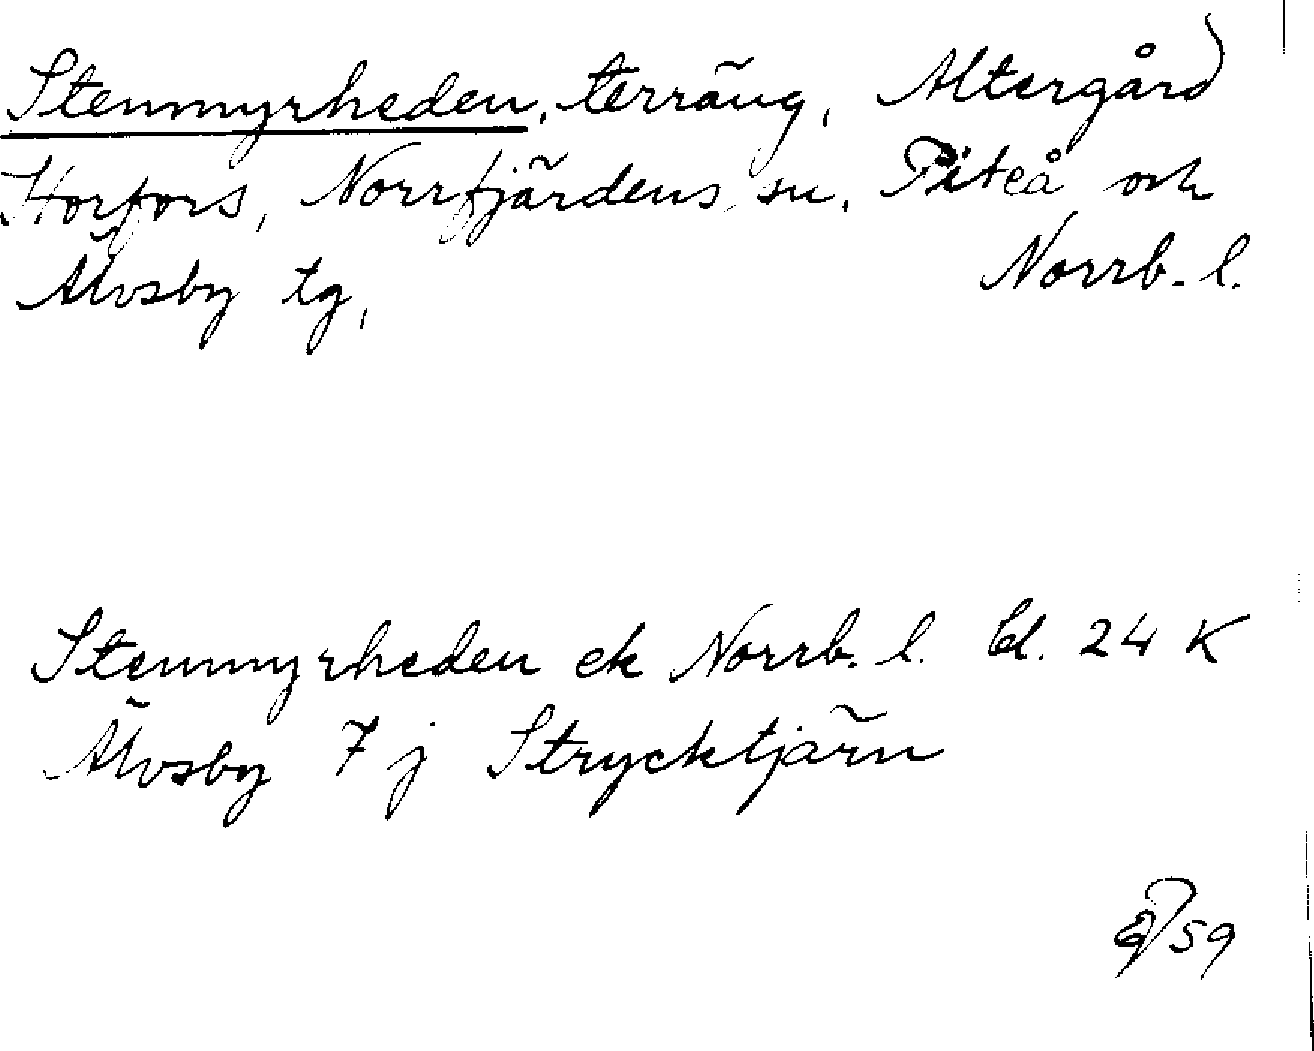 Stenmyrheden, terräng, Altergård
Storfors, Norrfjärdens sn, Piteå och
Älvsby tg, Norrb. l.
Stenmyrheden ek Norrb. l. bl. 24 K
Älvsby 7 j Strycktjärn
59